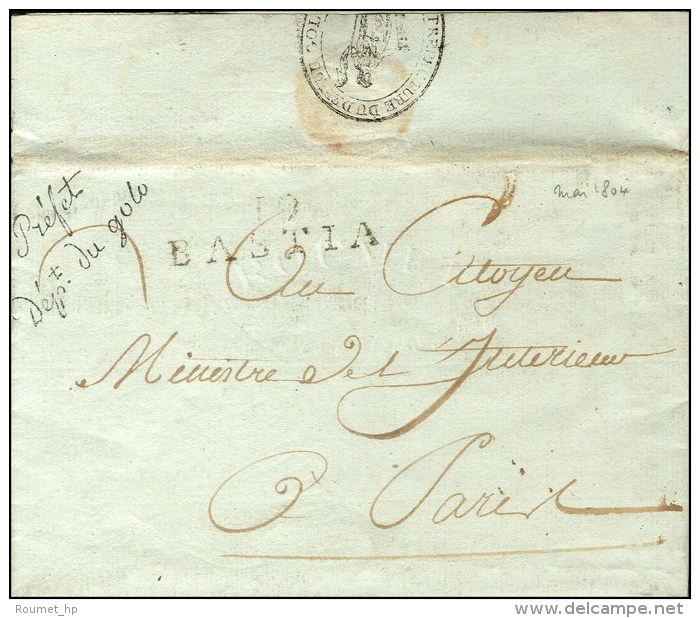 PREFECTURE DU DEPT DE GOLO
mai 1804
Préfet
Dépt. du golo
19
BASTIA
Au Citoyen
Ministre de l'Interieur
À Paris
Roumet_hp
www.delcampe.net